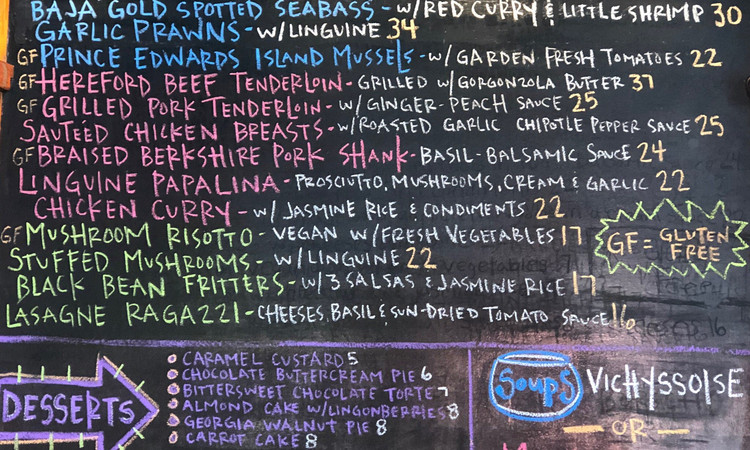 BAJA GOLD SPOTTED SEABASS - W/RED CURRY & LITTLE SHRIMP 30
GARLIC PRAWNS - W/LINGUINE 34
GF PRINCE EDWARDS ISLAND MUSSELS - W/ GARDEN FRESH TOMATOES 22
GF HEREFORD BEEF TENDERLOIN - GRILLED W/GORGONZOLA BUTTER 37
GF GRILLED PORK TENDERLOIN - W/ GINGER-PEACH SAUCE 25
SAUTÉED CHICKEN BREASTS - W/ROASTED GARLIC CHIPOTLE PEPPER SAUCE 25
GF BRAISED BERKSHIRE PORK SHANK - BASIL-BALSAMIC SAUCE 24
LINGUINE PAPALINA - PROSCIUTTO, MUSHROOMS, CREAM & GARLIC 22
CHICKEN CURRY - W/ JASMINE RICE & CONDIMENTS 22
GF MUSHROOM RISOTTO - VEGAN W/FRESH VEGETABLES 17
STUFFED MUSHROOMS - W/LINGUINE 22
BLACK BEAN FRITTERS - W/3 SALSAS & JASMINE RICE 17
LASAGNE RAGAZZI - CHEESES, BASIL & SUN-DRIED TOMATO SAUCE 16
GF = GLUTEN
FREE
DESSERTS
CARAMEL CUSTARD 5
CHOCOLATE BUTTERCREAM PIE 6
BITTERSWEET CHOCOLATE TORTE 7
ALMOND CAKE W/LINGONBERRIES 8
GEORGIA WALNUT PIE 8
CARROT CAKE 8
SOUPS VICHYSSOISE
— OR —